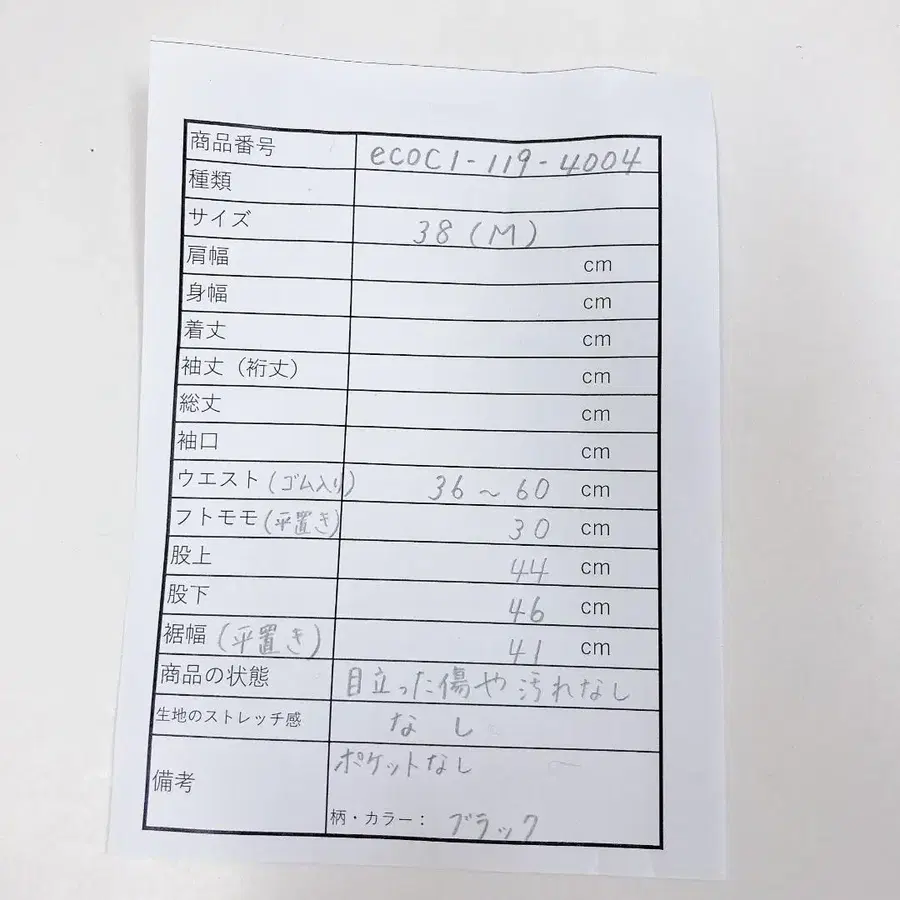 商品番号 ecoc1-119-4004
種類
サイズ 38(M)
肩幅 cm
身幅 cm
着丈 cm
袖丈（裄丈） cm
総丈 cm
袖口 cm
ウエスト(ゴム入り) 36～60 cm
フトモモ(平置き) 30 cm
股上 44 cm
股下 46 cm
裾幅(平置き) 41 cm
商品の状態 目立った傷や汚れなし
生地のストレッチ感 なし
備考 ポケットなし
柄・カラー： ブラック